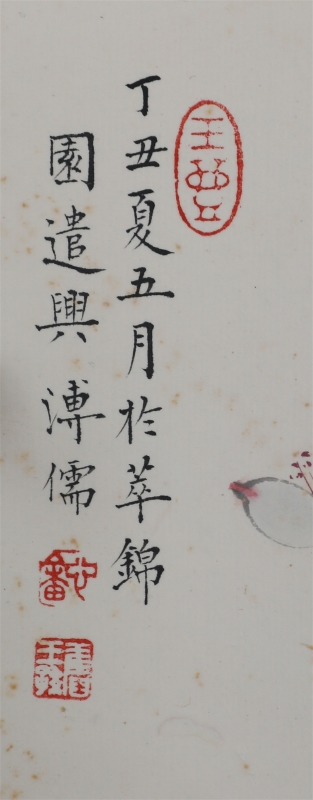 丁丑夏五月於萃錦
園遣興溥儒